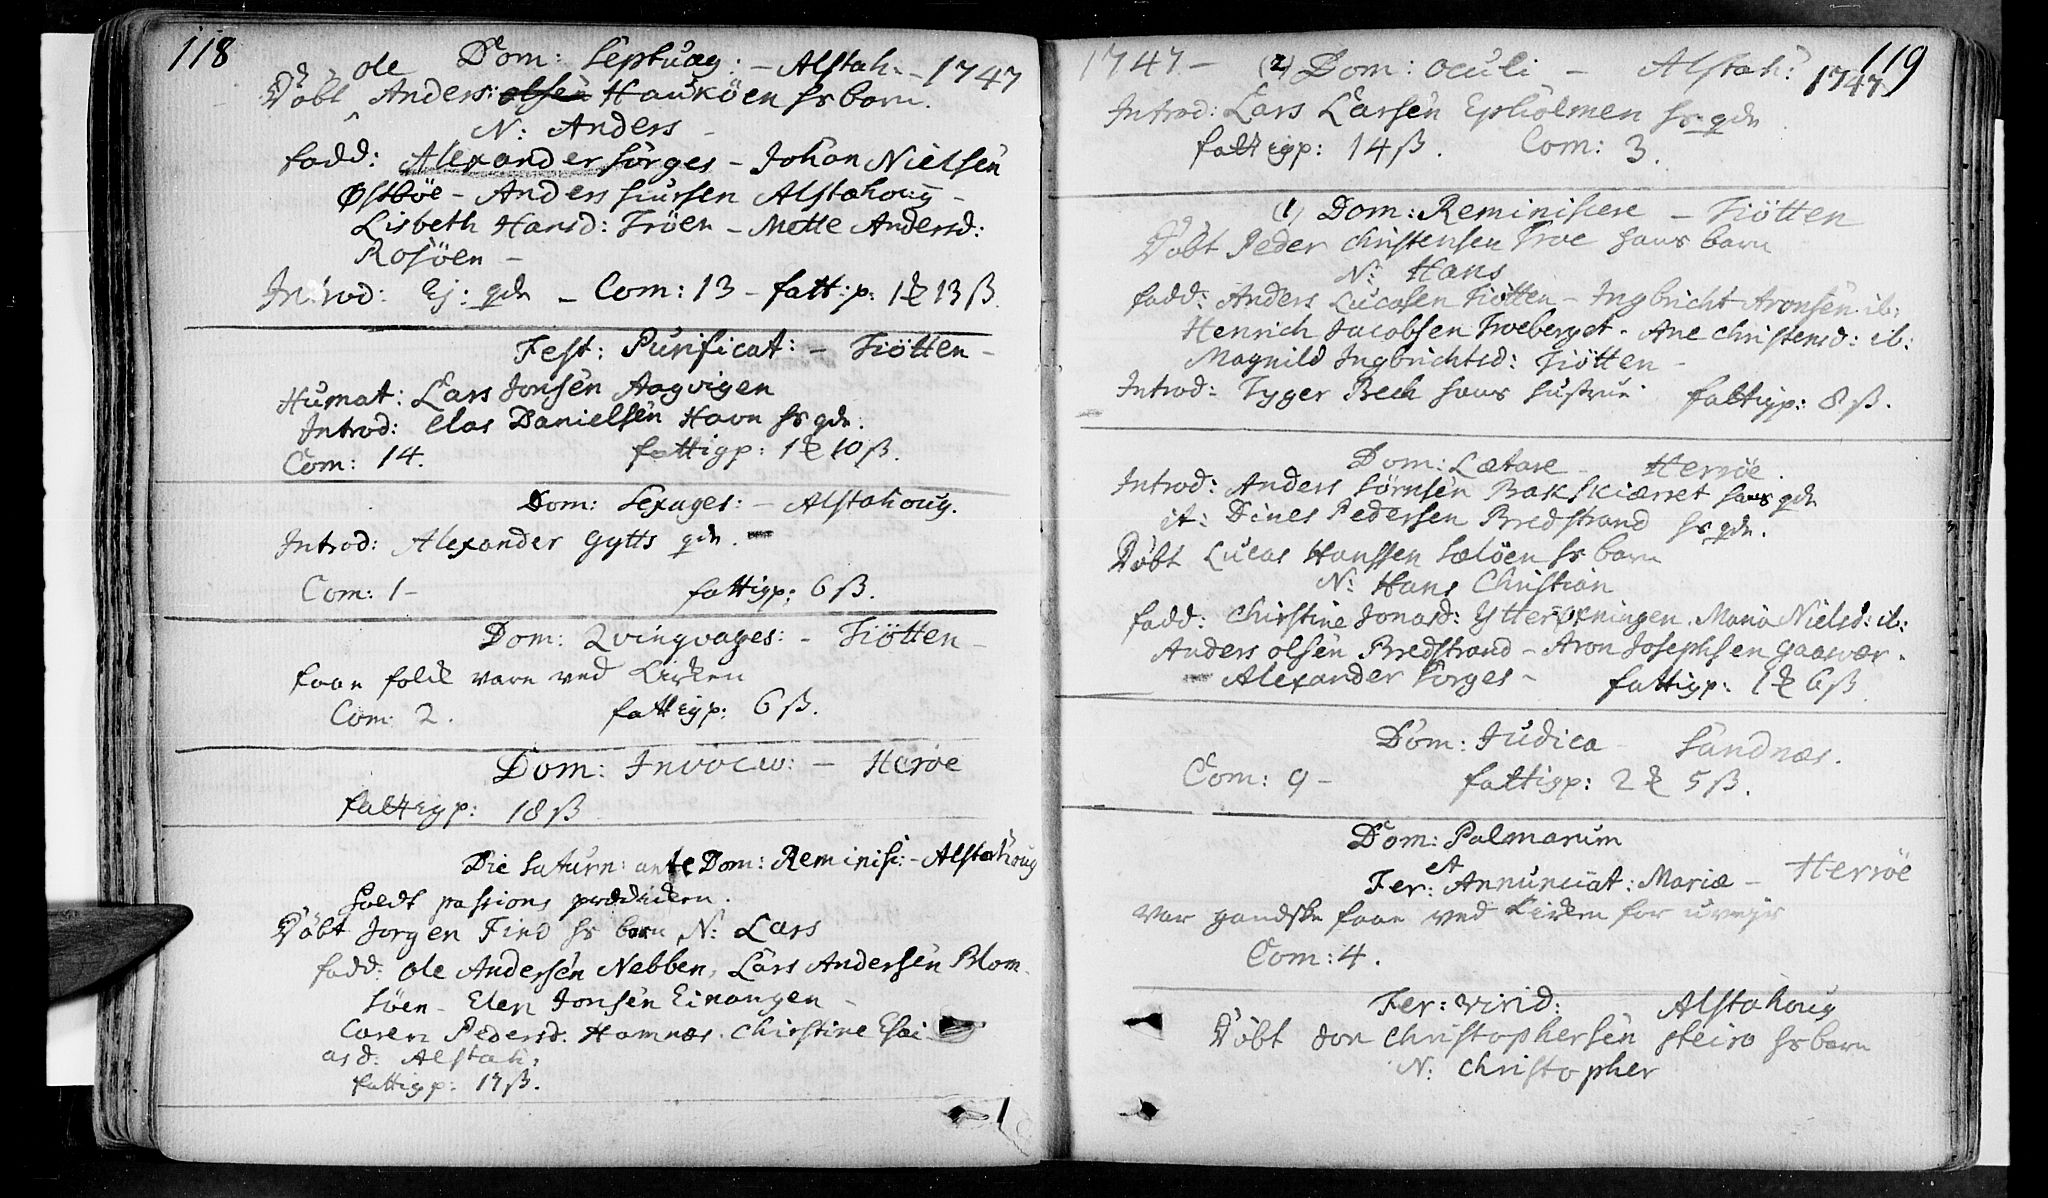 118
Dom: Septuag: - Alstah: - 1747
Døbt Ole Anders: olsen Haukøen hs barn.
N: Anders -
fadd: Alexander Sørges - Johan Nielsen
Østbøe - Anders Siursen Alstahoug -
Lisbeth Hansd: Trøen - Mette Andersd:
Rosøen -
Introd: Ej: qde - Com: 13 - fatt: p: 1 13 ß.
Fest: Purificat: - Tiötten -
Humat: Lars Jonsen Aagvigen
Introd: Clas Danielsen Havn hs qde.
Com: 14. fattigp: 1 10 ß.
Dom: Sexages: - Alstahoug.
Introd: Alexander Gytts qde.
Com: 1 - fattigp: 6 ß.
Dom: Qvinqvages: - Tiötten -
faae folck vare ved Kircken
Com: 2. fattigp: 6 ß.
Dom: Invocav: - Herøe
fattigp: 18 ß
Die Saturn: ante Dom: Reminisc: - Alstahoug
holdt passions prædicken.
Døbt Jørgen Find hs barn N: Lars
fadd: Ole Andersen Nebben, Lars Andersen Blom-
søen - Elen Jonsen Einangen -
Caren Pedersd. Hamnæs. Christine Esai
asd: Alstah:
fattigp: 17 ß.
1747 - (2) Dom: Oculi - Alstah: 119
1747
Introd: Lars Larsen Episholmen hs qde
fattigp: 14 ß. Com: 3.
(1) Dom: Reminiscere - Tiötten
Døbt Peder Christensen Troe hans barn
N: Hans
fadd: Anders Lucasen Tiötten - Ingbricht Aronsen ib:
Henrich Jacobsen Troeberget - Ane Christensd: ib:
Magnild Ingbrichtsd: Tiötten -
Introd: Tyger Beck hans hustrue fattigp: 8 ß.
Dom: Lætare - Herrøe.
Introd: Anders Sørnsen Bakskiærret hans qde
it: Dines Pedersen Bredstrand hs qde.
Døbt Lucas Hanssen Saløen hs barn
N: Hans Christian
fadd: Christine Jonasd: Ytterøxningen. Maria Nielsd: ib:
Anders Olsen Bredstrand - Aron Josephsen Gaasvær.
- Alexander Sorges - fattigp: 1 6 ß.
Dom: Judica - Sandnæs.
Com: 9 - fattigp: 2 5 ß.
Dom: Palmarum
et
Fer: Annunciat: Mariæ - Herrøe
var gandske faae ved Kircken for uvejr
Com: 4.
Fer: virid: Alstahoug
Døbt Jon Christophersen Steiro hs barn
N: Christopher